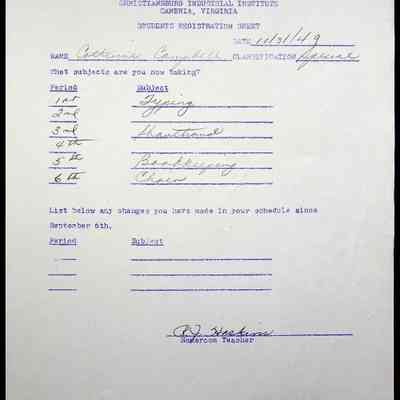 CHRISTIANSBURG INDUSTRIAL INSTITUTE
CAMBRIA, VIRGINIA
STUDENTS REGISTRATION SHEET
DATE 10/31/49
NAME Catherine Campbell CLASSIFICATION Special
What subjects are you now taking?
Period Subject
1st Typing
2nd
3rd Shorthand
4th
5th Bookkeeping
6th Choir
List below any changes you have made in your schedule since
September 6th.
Period Subject
Homeroom Teacher